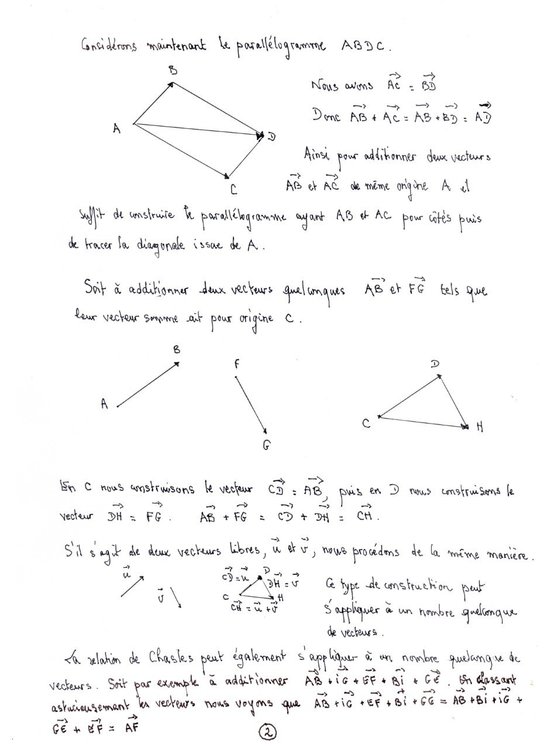 Considérons maintenant le parallélogramme ABDC.
B
A
D
C
Nous avons $\overrightarrow{AC}$ = $\overrightarrow{BD}$
Donc $\overrightarrow{AB}$ + $\overrightarrow{AC}$ = $\overrightarrow{AB}$ + $\overrightarrow{BD}$ = $\overrightarrow{AD}$
Ainsi pour additionner deux vecteurs
$\overrightarrow{AB}$ et $\overrightarrow{AC}$ de même origine A il
suffit de construire le parallélogramme ayant AB et AC pour côtés puis
de tracer la diagonale issue de A.
Soit à additionner deux vecteurs quelconques $\overrightarrow{AB}$ et $\overrightarrow{FG}$ tels que
leur vecteur somme ait pour origine C.
A
B
F
G
C
D
H
En C nous construisons le vecteur $\overrightarrow{CD}$ = $\overrightarrow{AB}$, puis en D nous construisons le
vecteur $\overrightarrow{DH}$ = $\overrightarrow{FG}$. $\overrightarrow{AB}$ + $\overrightarrow{FG}$ = $\overrightarrow{CD}$ + $\overrightarrow{DH}$ = $\overrightarrow{CH}$.
S'il s'agit de deux vecteurs libres, $\vec{u}$ et $\vec{v}$, nous procédons de la même manière.
$\vec{u}$
$\vec{v}$
$\overrightarrow{CD}$ = $\vec{u}$
D
$\overrightarrow{DH}$ = $\vec{v}$
C
H
$\overrightarrow{CH}$ = $\vec{u}$ + $\vec{v}$
Ce type de construction peut
s'appliquer à un nombre quelconque
de vecteurs.
La relation de Chasles peut également s'appliquer à un nombre quelconque de
vecteurs. Soit par exemple à additionner $\overrightarrow{AB}$ + $\overrightarrow{iG}$ + $\overrightarrow{EF}$ + $\overrightarrow{Bi}$ + $\overrightarrow{GE}$. En classant
astucieusement les vecteurs nous voyons que $\overrightarrow{AB}$ + $\overrightarrow{iG}$ + $\overrightarrow{EF}$ + $\overrightarrow{Bi}$ + $\overrightarrow{GE}$ = $\overrightarrow{AB}$ + $\overrightarrow{Bi}$ + $\overrightarrow{iG}$ +
$\overrightarrow{GE}$ + $\overrightarrow{EF}$ = $\overrightarrow{AF}$
2